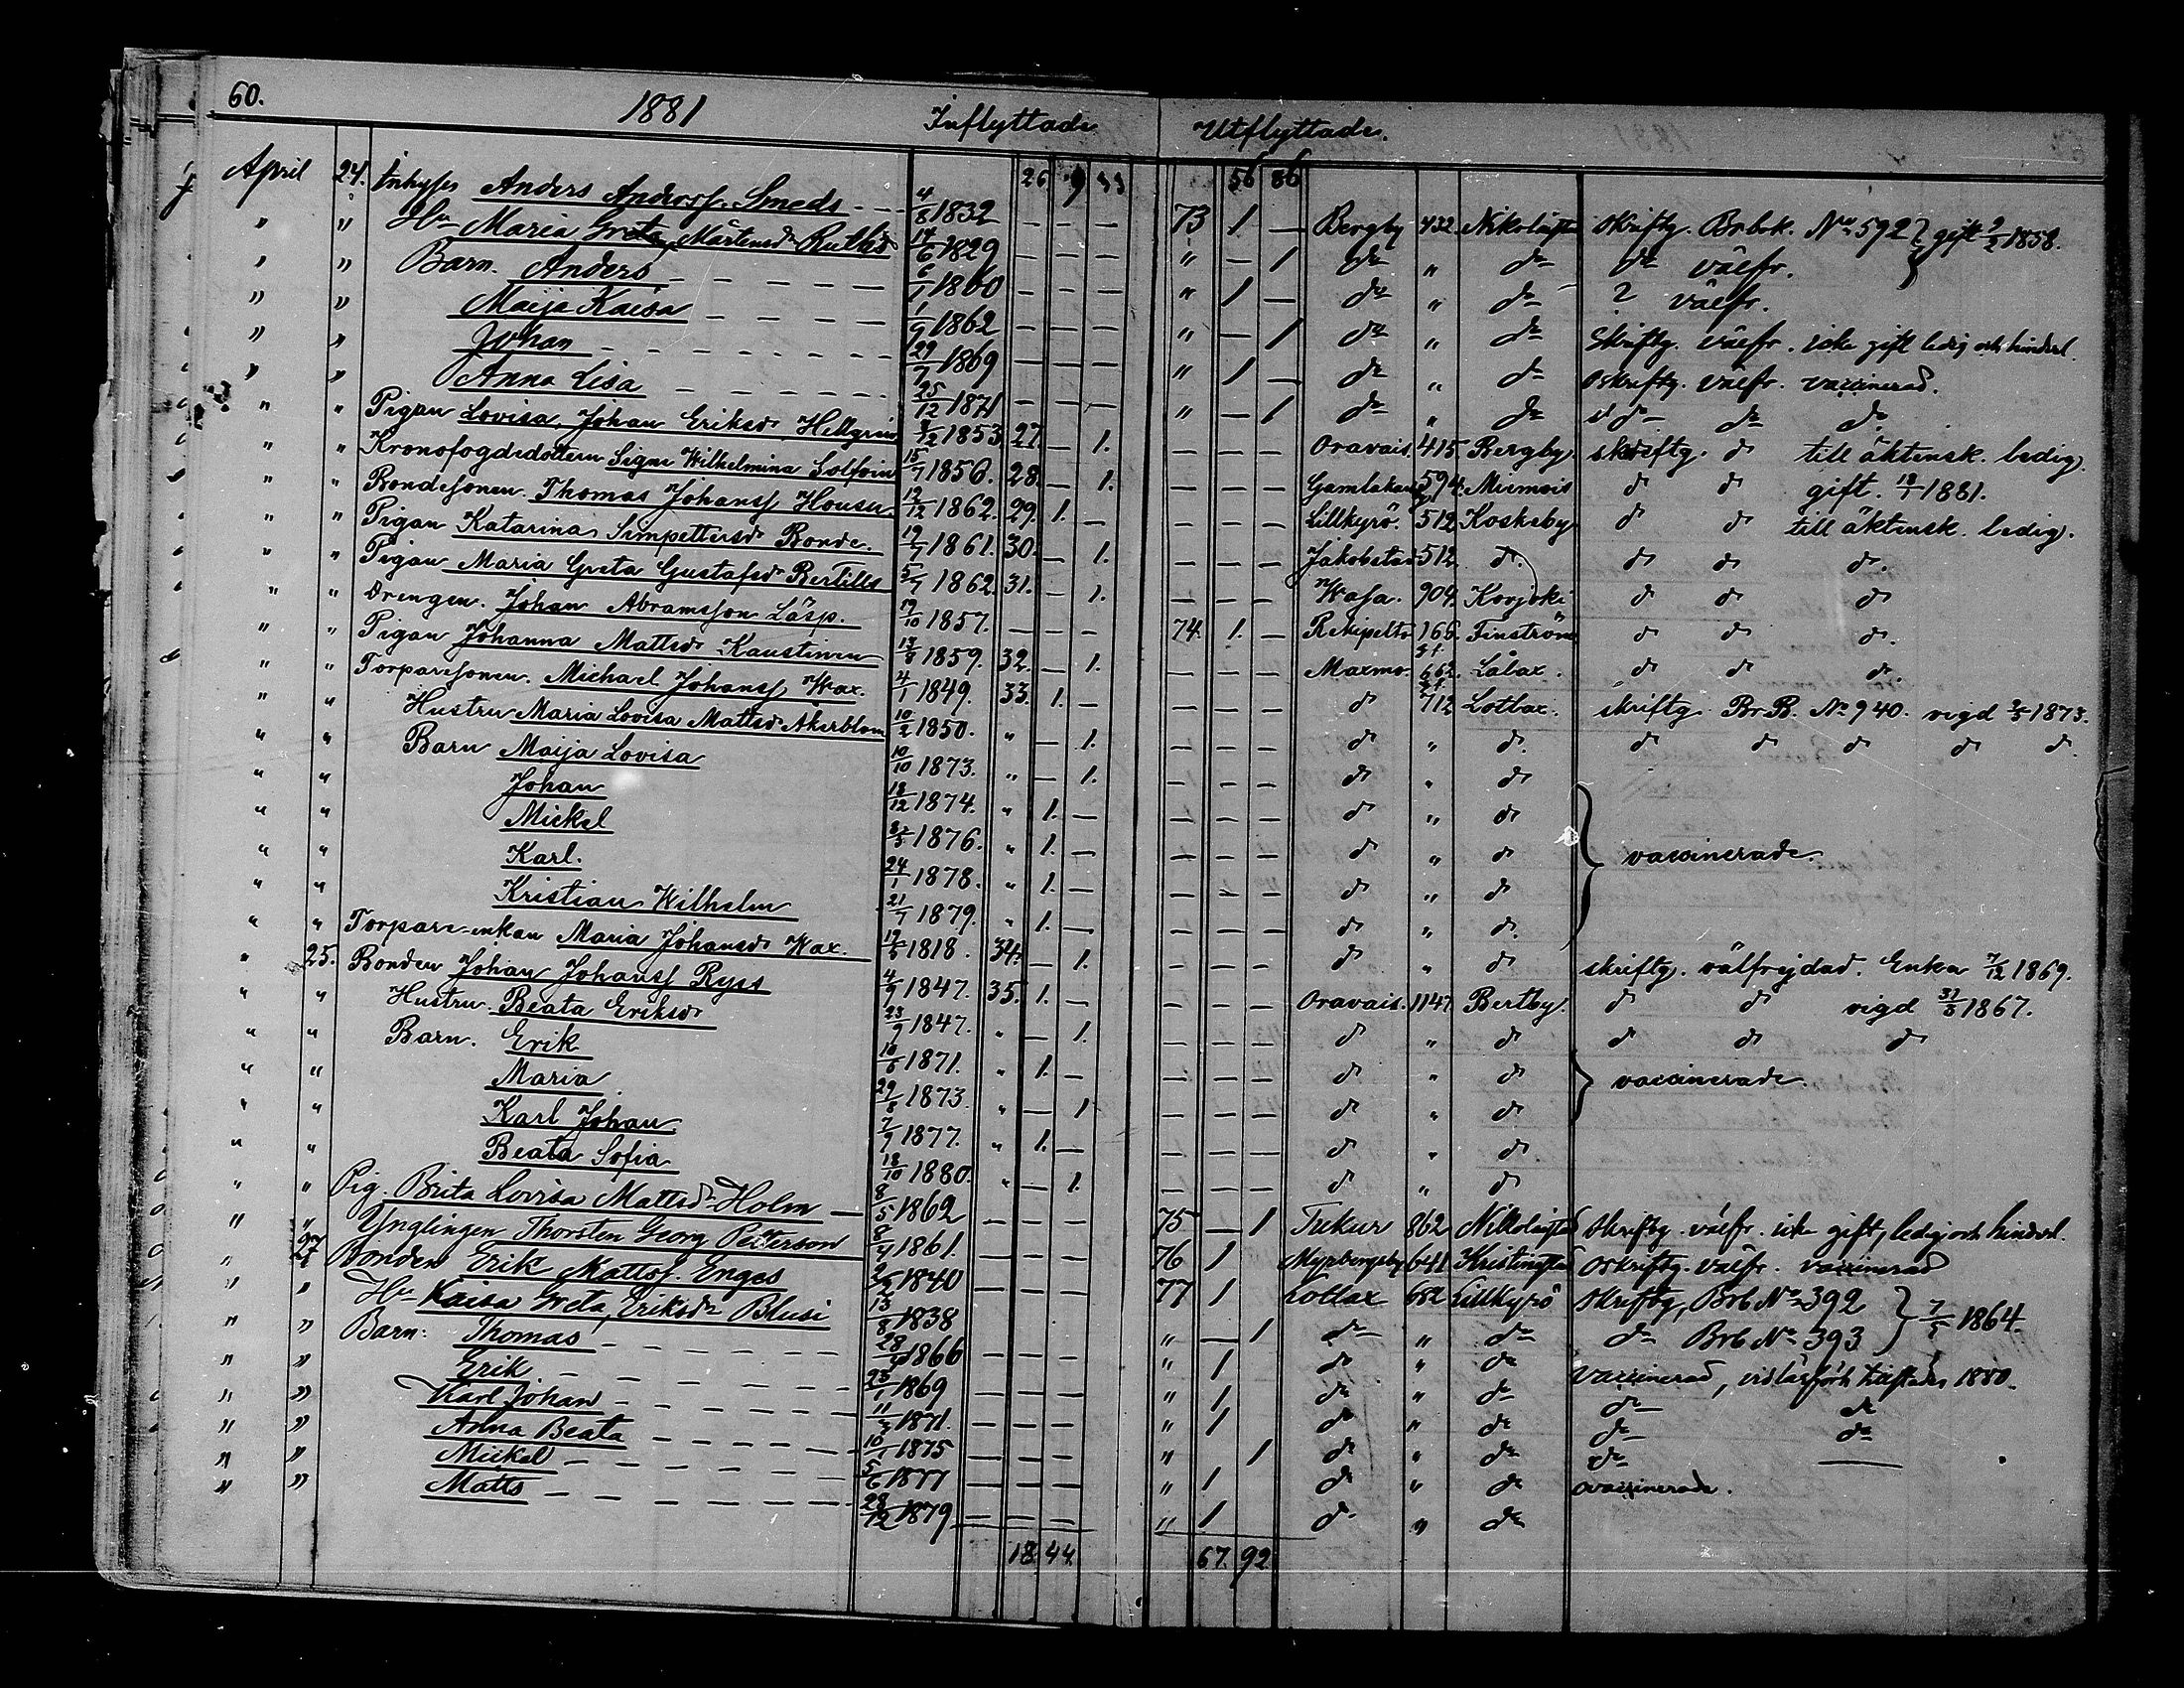 60. 1881 Inflyttade Utflyttade.
26 9 33 56 86
April 24. Inhyses Anders Anderss. Smeds - - 4/8 1832 - - - - 73 1 - Bergby 432 Nikolaista Skriftg. Brbok. No 592 } gift 9/5 1858.
" " Hu Maria Greta Mårtensdr Ruths 14/6 1829 - - - - " - 1 do " do do välfr.
" " Barn. Anders - - - - 6/1 1860 - - - - " 1 - do " do 2 välfr.
" " Maija Kaisa - - - - 1/9 1862 - - - - " - 1 do " do Skriftg. välfr. icke gift ledig och hindersl.
" " Johan - - - - - - 29/7 1869 - - - - " 1 - do " do Oskriftg. välfr. vaccinerad.
" " Anna Lisa - - - - - 25/12 1871 - - - - " - 1 do " do do do do
" " Pigan Lovisa, Johan Eriksdr Hellgren 8/12 1853 27. - 1. - - - Oravais. 415. Bergby skriftg. do till äktensk. ledig.
" " Kronofogdedottern Signe Wilhelmina Solfvin 15/7 1856. 28. - 1. - - - Gamlakarl 594. Miemois do do gift. 18/1 1881.
" " Bondesonen. Thomas Johanss Housu 12/12 1862. 29. 1. - - - - Lillkyrö. 512 Koskeby do do till äktensk. ledig.
" " Pigan Katarina Simpettersdr Bonde. 19/7 1861. 30. - 1. - - - Jakobstad 512. do. do do do.
" " Pigan Maria Greta Gustafsdr Bertills 5/7 1862. 31. - 1. - - - Wasa. 909. Korjoki do do do
" " Drengen. Johan Abramsson Läsp. 19/10 1857. - - - 74. 1. - Rekipelto 166. Finström do do do.
" " Pigan Johanna Mattsdr Kaustinen 13/8 1859. 32. - 1. - - - Maxmo. 662. Lålax. do do do.
" " Torparesonen. Michael Johanss Wax. 4/1 1849. 33. 1. - - - - do 712 Lotlax. skriftg BrB. No 940. vigd 2/3 1873.
" " Hustru Maria Lovisa Mattsdr Åkerblom 10/2 1850. " - 1. - - - do " do. do do do do do.
" " Barn Maija Lovisa 10/10 1873. " - 1. - - - do " do
" " Johan 18/12 1874. " 1. - - - - do " do
" " Mickel 8/3 1876. " 1. - - - - do " do } vaccinerade.
" " Karl. 24/1 1878. " 1. - - - - do " do
" " Kristian Wilhelm 21/7 1879. " 1. - - - - do " do.
" " Torpare-enkan Maria Johansdr Wax. 19/5 1818. 34. - 1. - - - do " do skriftg. välfrejdad. Enka 7/12 1869.
" 25. Bonden Johan Johanss Ryss 4/9 1847. 35. 1. - - - - Oravais. 1147. Bertby. do do vigd 31/3 1867.
" " Hustru. Beata Eriksdr 23/9 1847. " - 1. - - - do " do do do do
" " Barn. Erik 10/6 1871. " 1. - - - - do " do } vaccinerade.
" " Maria 29/8 1873. " - 1 - - - do " do
" " Karl Johan 7/9 1877. " 1. - - - - do " do
" " Beata Sofia 18/10 1880. " - 1. - - - do " do
" " Pig. Brita Lovisa Mattsdr Holm - 8/5 1862 - - - - 75 - 1 Tukur 862 Nikolaistad Skriftg. välfr. icke gift, ledig och hindersl.
" " Ynglingen Thorsten Georg Petterson 8/4 1861. - - - - 76 1 Myrbergsby 641 Kristinestad Oskriftg. välfr. vaccinerad
" 27 Bonden Erik Mattss. Enges 9/2 1840 - - - 77 1 Lotlax 682 Lillkyrö Skriftg, Brb No 392 } 7/5 1864.
" " Hu Kaisa Greta, Eriksdr Blusi 13/8 1838 " - 1 do " do do Brb No 393
" " Barn: Thomas - - - - - 28/4 1866 - - - " 1 do " do vaccinerad, vid läsförh. 1880.
" " Erik - - - - - - 23/1 1869 - - - " 1 do " do do do
" " Karl Johan - - - - - 11/2 1871. - - - " 1 do " do do do
" " Anna Beata - - - - - 10/1 1875 - - - " 1 do " do do
" " Mickel - - - - - 5/6 1877 - - - " 1 do " do ovaccinerade.
" " Matts - - - - - - 28/12 1879 - - - " 1 do " do
18. 44. 67. 92